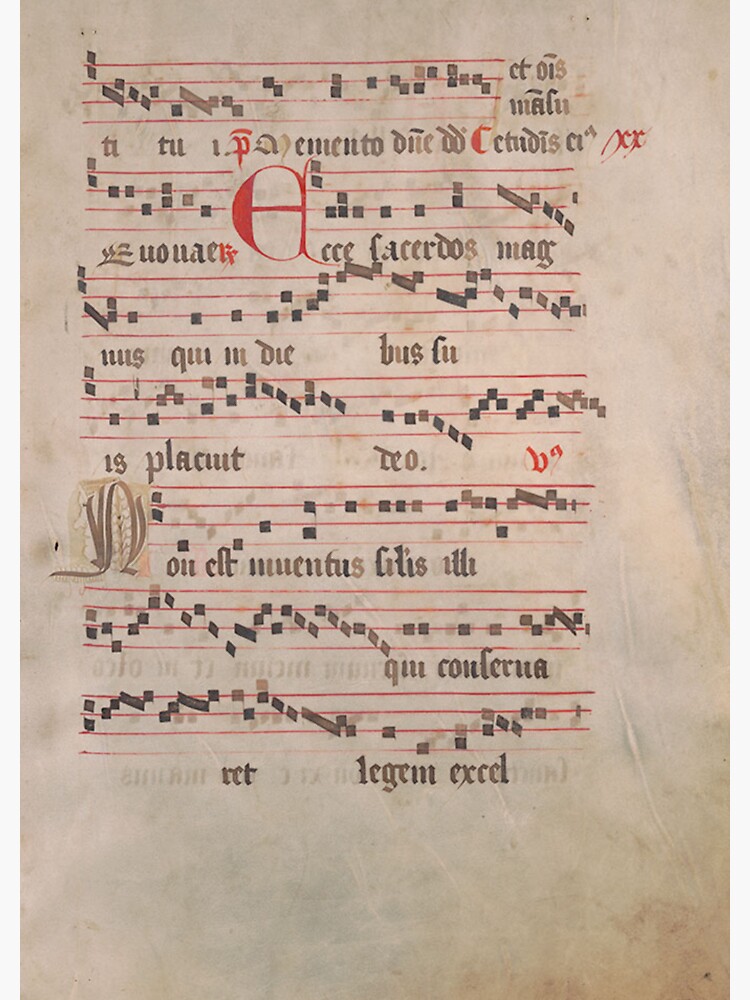 et oīs
māsu
ti tu i. p̄ Memento dn̄e dd̄ Et cudīs ei⁹ xx
Euouae ꝶ Ecce sacerdos mag
nus qui in die bus su
is placuit deo. v⁹
Non est inuentus silis illi
qui conserua
ret legem excel